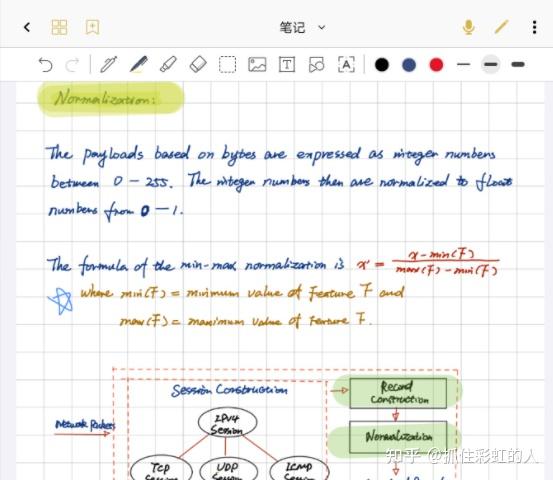 笔记
Normalization:
The payloads based on bytes are expressed as integer numbers
between 0 - 255. The integer numbers then are normalized to float
numbers from 0 - 1.
The formula of the min-max normalization is x' = x - min(F) / max(F) - min(F)
where min(F) = minimum value of Feature F and
max(F) = maximum value of Feature F.
Session Construction
Record
Construction
Network Packets
IPV4
Session
Normalization
TCP
Session
UDP
Session
ICMP
Session
知乎 @抓住彩虹的人